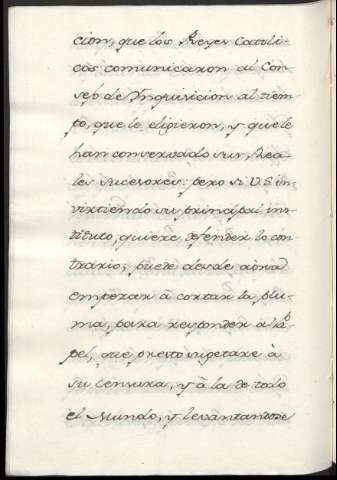 cion, que los Reyes Catoli-
cos comunicaron al Con-
sejo de Ynquisicion al tiem-
po, que le eligieron, y que le
han conservado sus Rea-
les sucesores: pero si V.S. in-
virtiendo su principal ins-
tituto, quiere defender lo con-
trario; puede desde aora
empezar à cortar la plu-
ma, para responder a pa-
pel, que presto sugetare à
su censura, y à la de todo
el Mundo, y levantandose